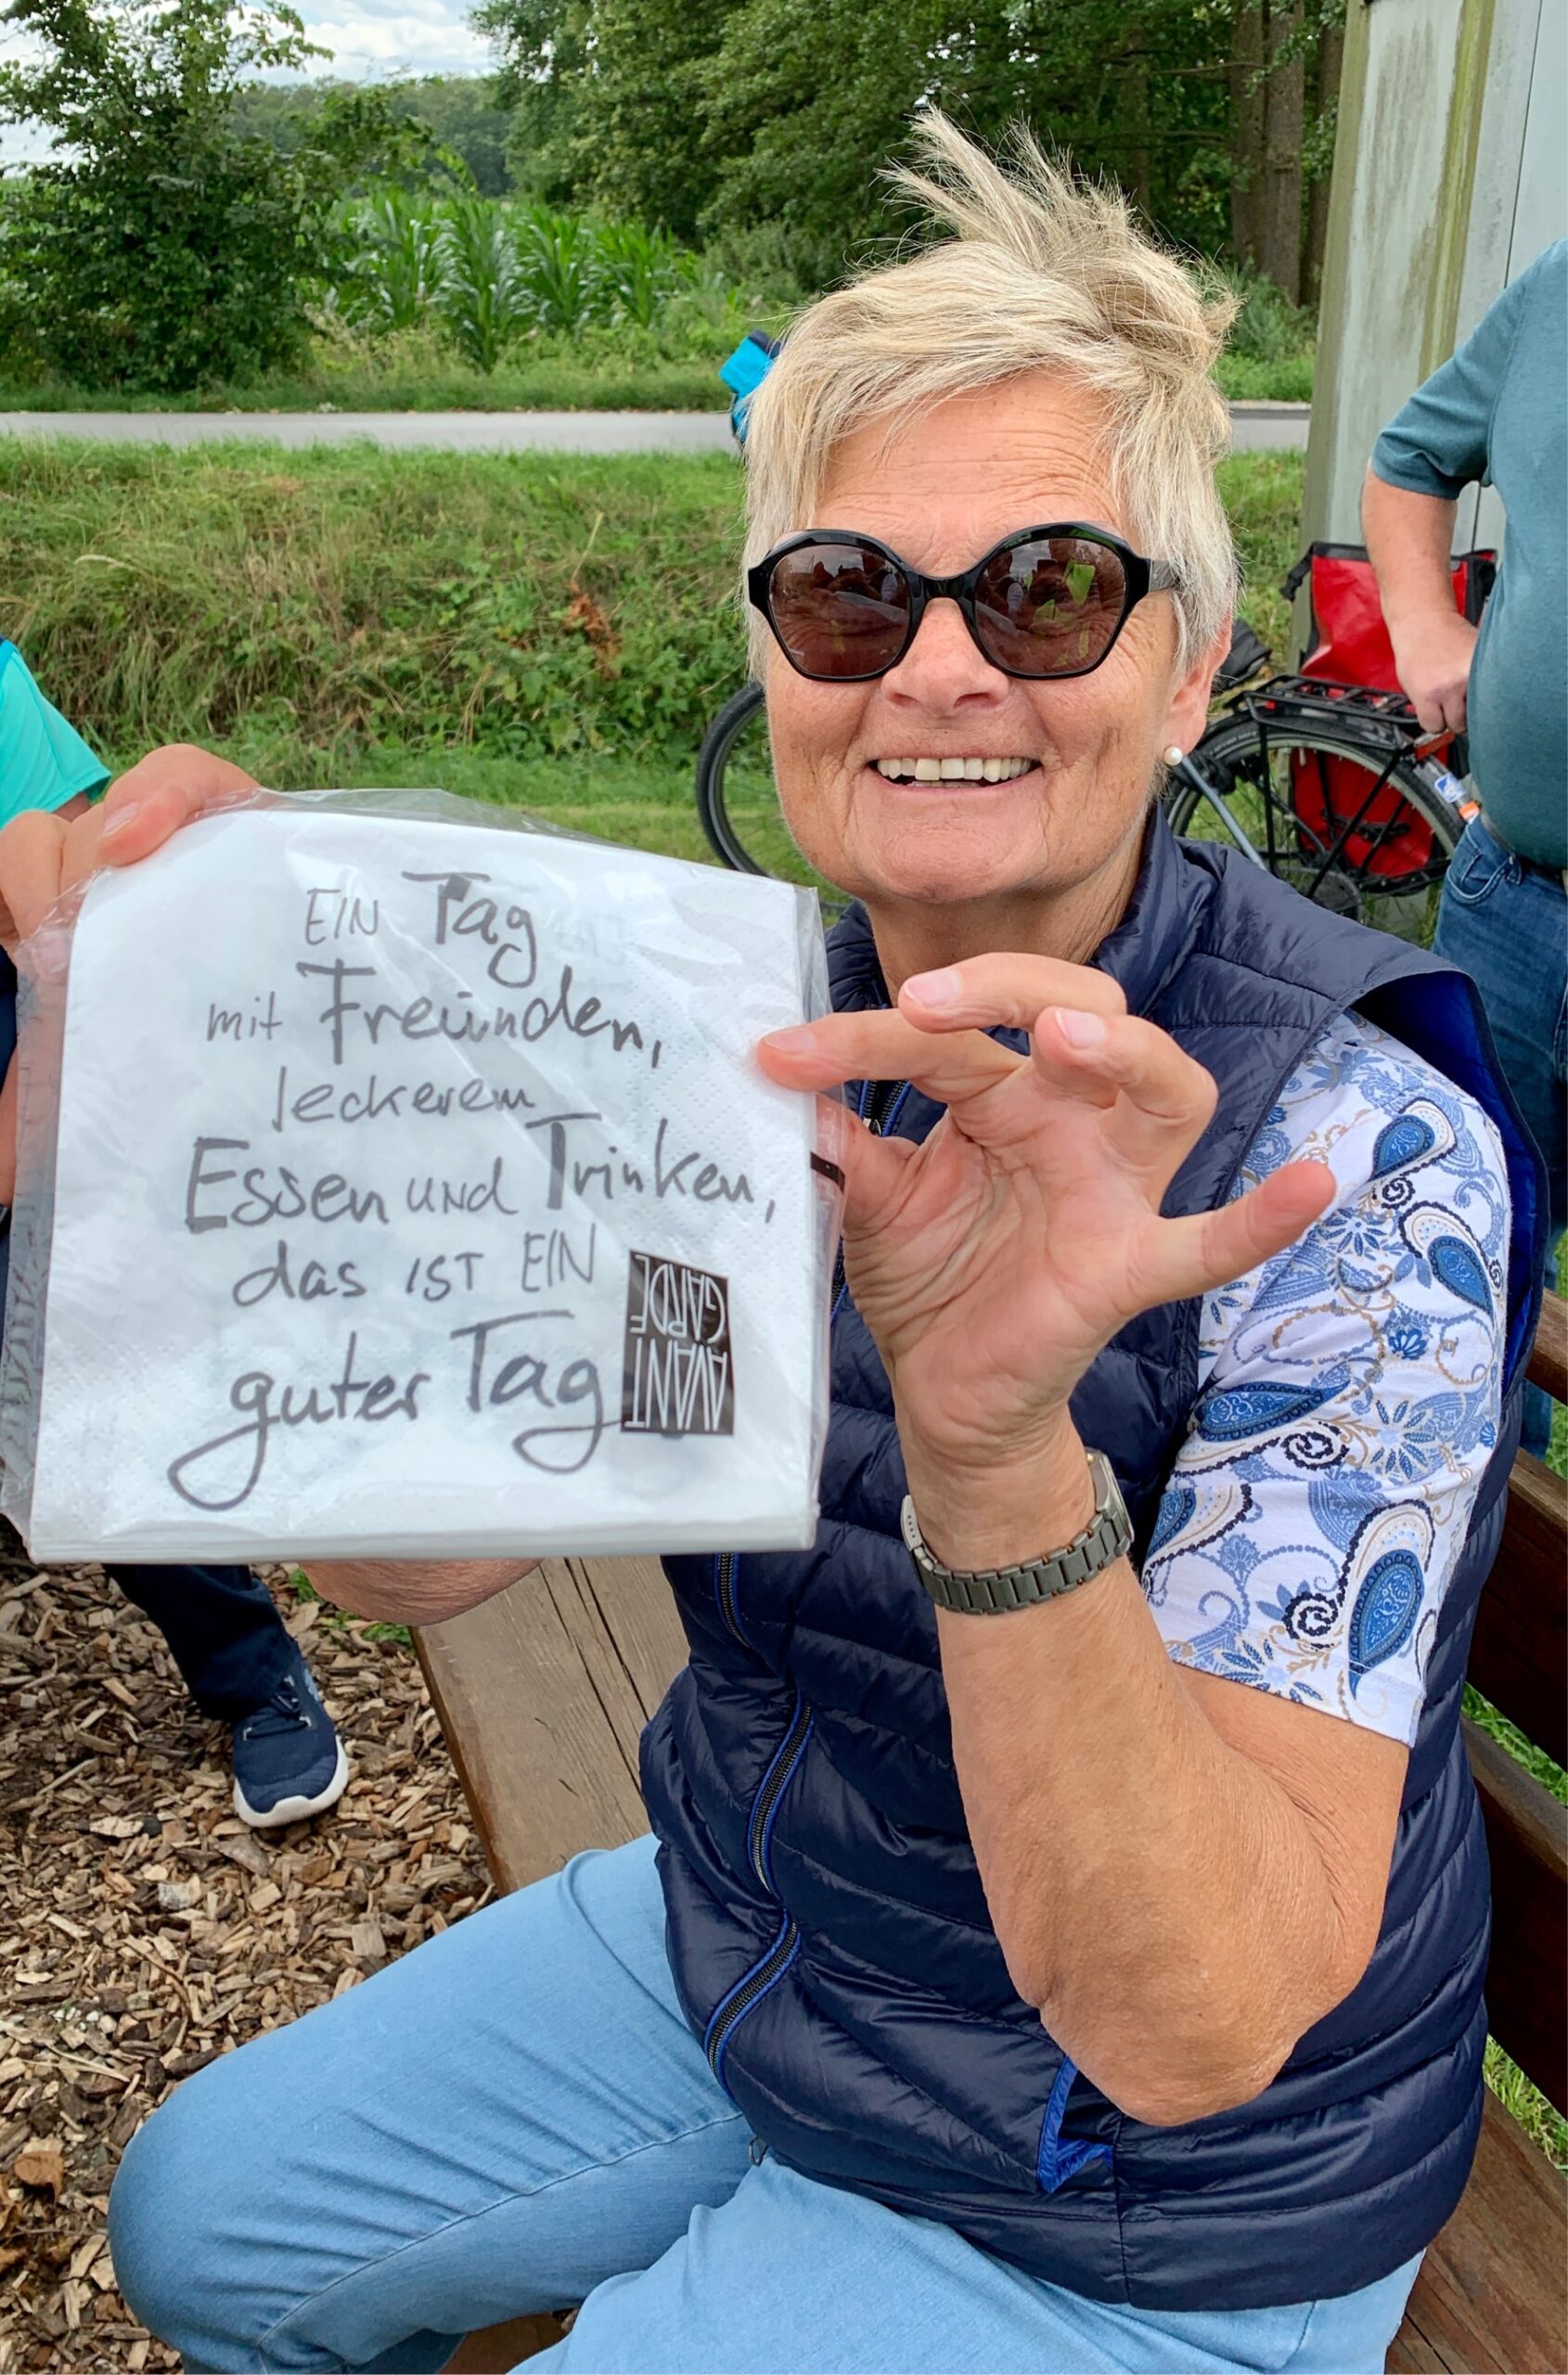 EIN Tag
mit Freunden,
leckerem
Essen und Trinken,
das IST EIN
guter Tag
AVANT
GARDE